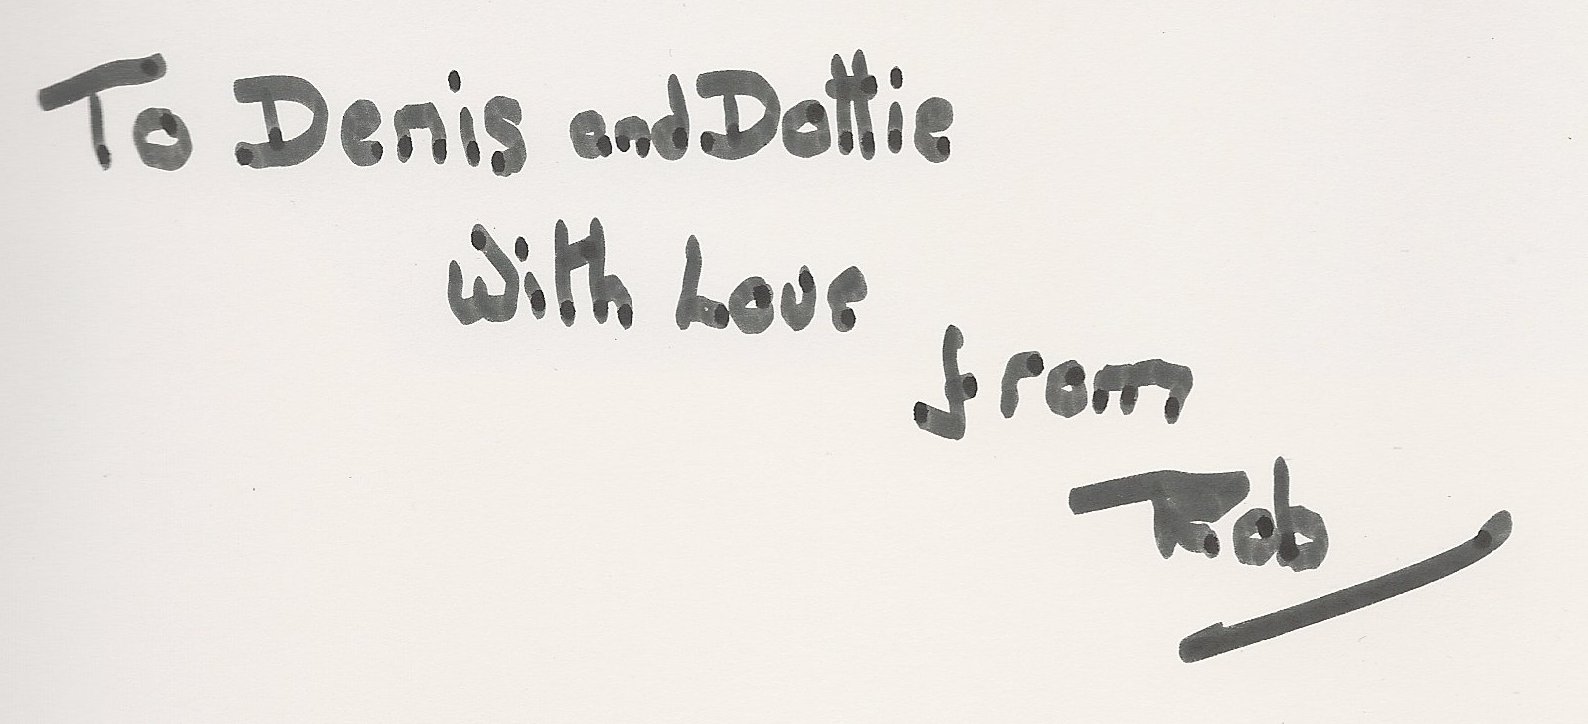 To Denis and Dottie
With Love
from
Rob